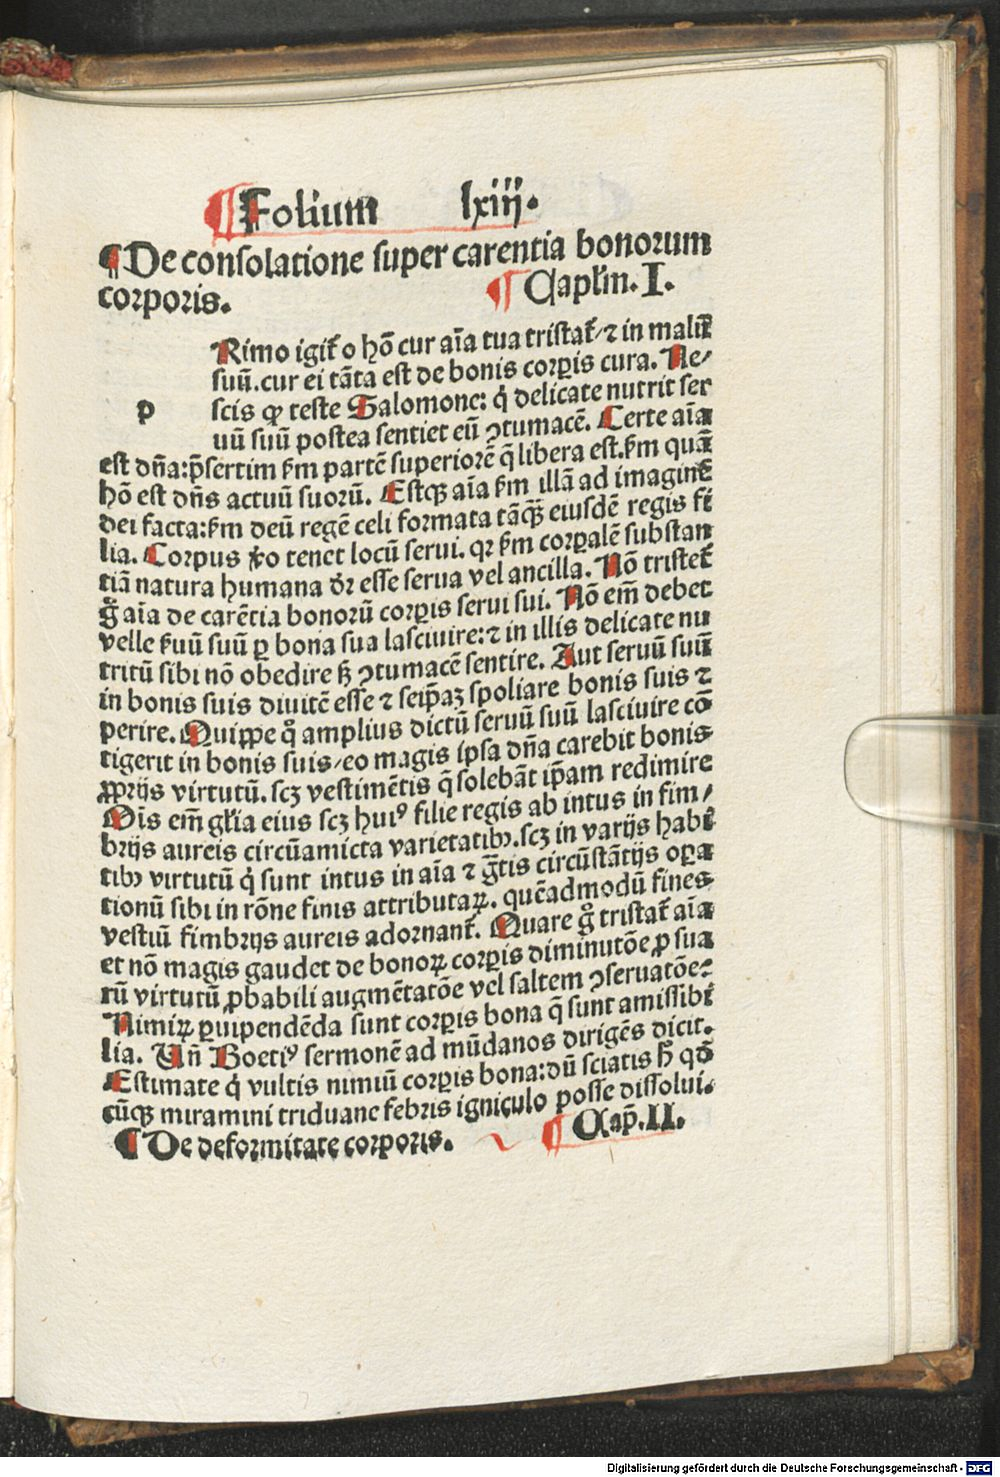 ¶Folium lxiij.
¶De consolatione super carentia bonorum
corporis. ¶Caplm̃. I.
Rimo igit᷑ o hõ cur aĩa tua tristat᷑/⁊ in malũ
suũ.cur ei tãta est de bonis corꝑis cura. Ne⸗
p
scis ꝙ teste Salomone: q̇ delicate nutrit ser
uũ suũ postea sentiet eũ ꝯtumacẽ. Certe aĩa
est dña:p̃sertim ẜm partẽ superiorẽ q̃ libera est.ẜm quã
hõ est dñs actuũ suorũ. Estqꝫ aĩa ẜm illã ad imaginẽ
dei facta:ẜm deũ regẽ celi formata tãqꝫ̃ eiusdẽ regis fi
lia. Corpus ṽo tenet locũ serui. qꝛ ẜm corꝑalẽ substan
tiã natura humana dr̃ esse serua vel ancilla. Nõ tristet᷑
g̊ aĩa de carẽtia bonorũ corꝑis serui sui. Nõ em̃ debet
velle ẜuũ suũ ꝑ bona sua lasciuire:⁊ in illis delicate nu
tritũ sibi nõ obedire sꝫ ꝯtumacẽ sentire. Aut seruũ suũ
in bonis suis diuitẽ esse ⁊ seip̃aꝫ spoliare bonis suis ⁊
perire. Quippe q̊ amplius dictũ seruũ suũ lasciuire cõ
tigerit in bonis suis/eo magis ipsa dña carebit bonis
ꝓprijs virtutũ.scꝫ vestimẽtis q̃ solebãt ip̃am redimire
Oĩs em̃ gl̃ia eius scꝫ huiꝰ filie regis ab intus in fim⸗
brijs aureis circũamicta varietatibꝫ.scꝫ in varijs habi
tibꝫ virtutũ q̇ sunt intus in aĩa ⁊ g̃tis circũstãtijs oꝑa
tionũ sibi in rõne finis attributaꝝ. quẽadmodũ fines
vestiũ fimbrijs aureis adornant᷑. Quare g̊ tristat᷑ aĩa
et nõ magis gaudet de bonoꝝ corꝑis diminutõe ꝓ sua
rũ virtutũ ꝓbabili augmẽtatõe vel saltem ꝯseruatõe:
Nimiꝝ ꝑuipendẽda sunt corꝑis bona q̃ sunt amissibi
lia. Uñ Boetiꝰ sermonẽ ad mũdanos dirigẽs dicit.
Estimate q̇ vultis nimiũ corꝑis bona:dũ sciatis h̃ qd̃
cũqꝫ miramini triduane febris igniculo posse dissolui.
¶De deformitate corporis. ¶Cap̃. II.
Digitalisierung gefördert durch die Deutsche Forschungsgemeinschaft - DFG